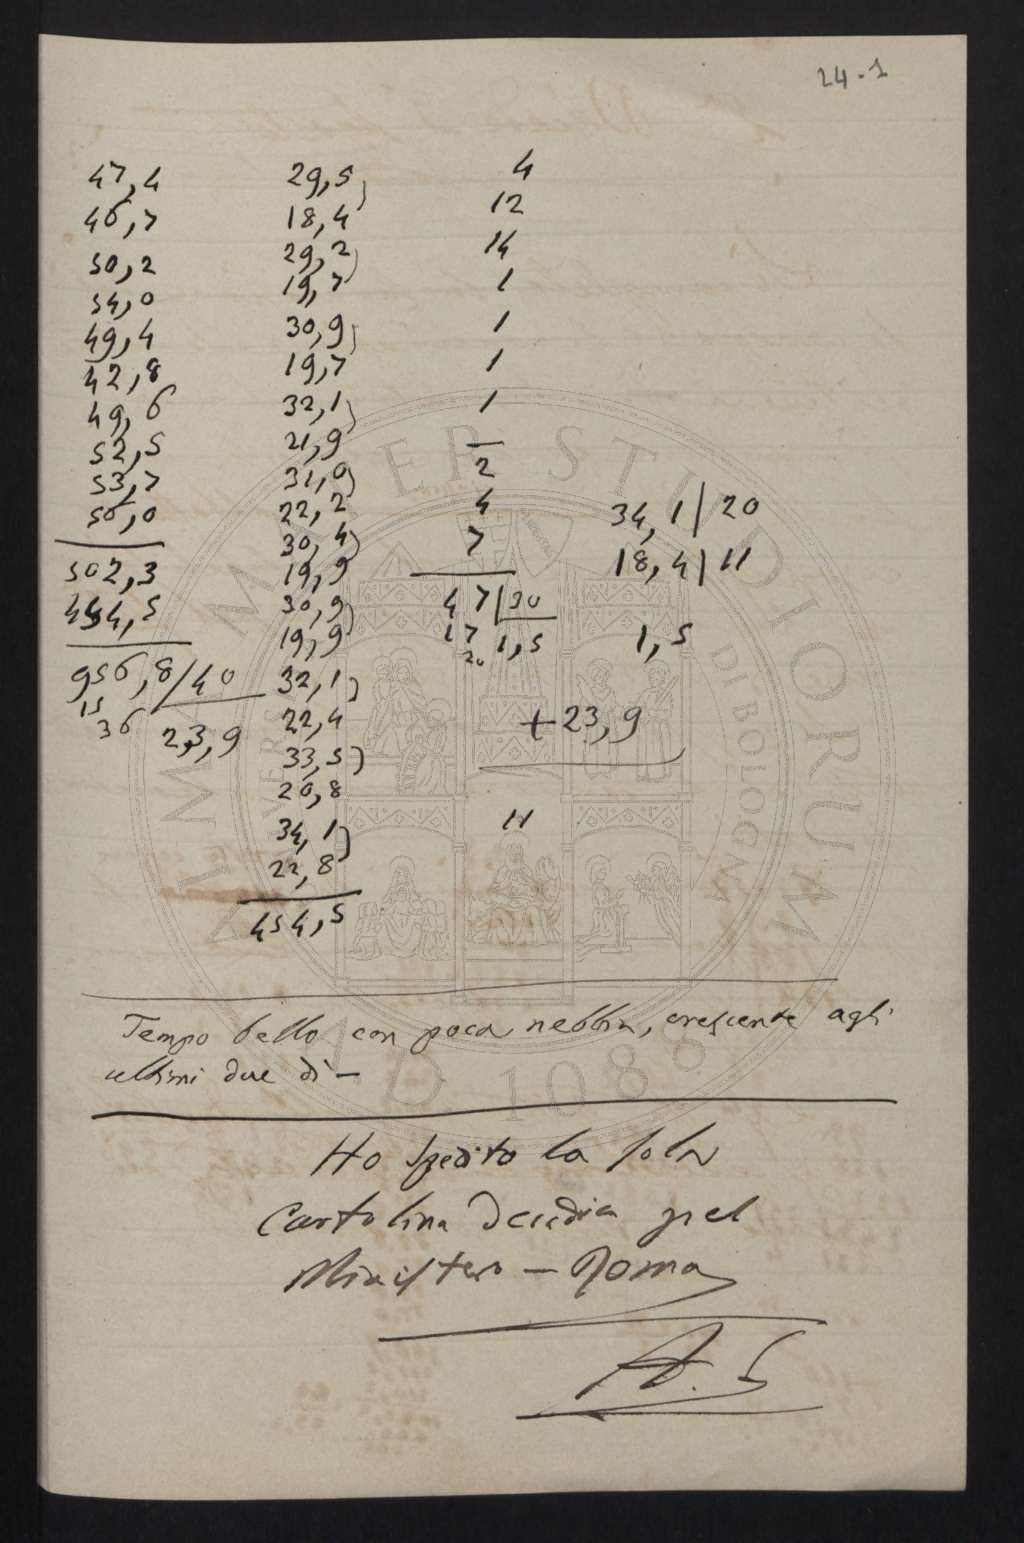 24.1
47,4
46,7
50,2
54,0
49,4
42,8
49,6
52,5
53,7
56,0
502,3
454,5
956,8/40
15
36
23,9
29,5)
18,4
29,2)
19,7
30,9)
19,7
32,1)
21,9
31,0)
22,2
30,4)
19,9
30,9)
19,9
32,1)
22,4
33,5)
20,8
34,1)
22,8
454,5
4
12
14
1
1
1
1
—
2
4
7
47|30
17 1,5
20
34,1/20
18,4/11
1,5
+23,9
11
Tempo bello con poca nebbia, crescente agli
ultimi due dì —
Ho spedito la sola
Cartolina Decadica pel
Ministero — Roma
A. S
ALMA MATER STUDIORUM
A.D. 1088
DI BOLOGNA